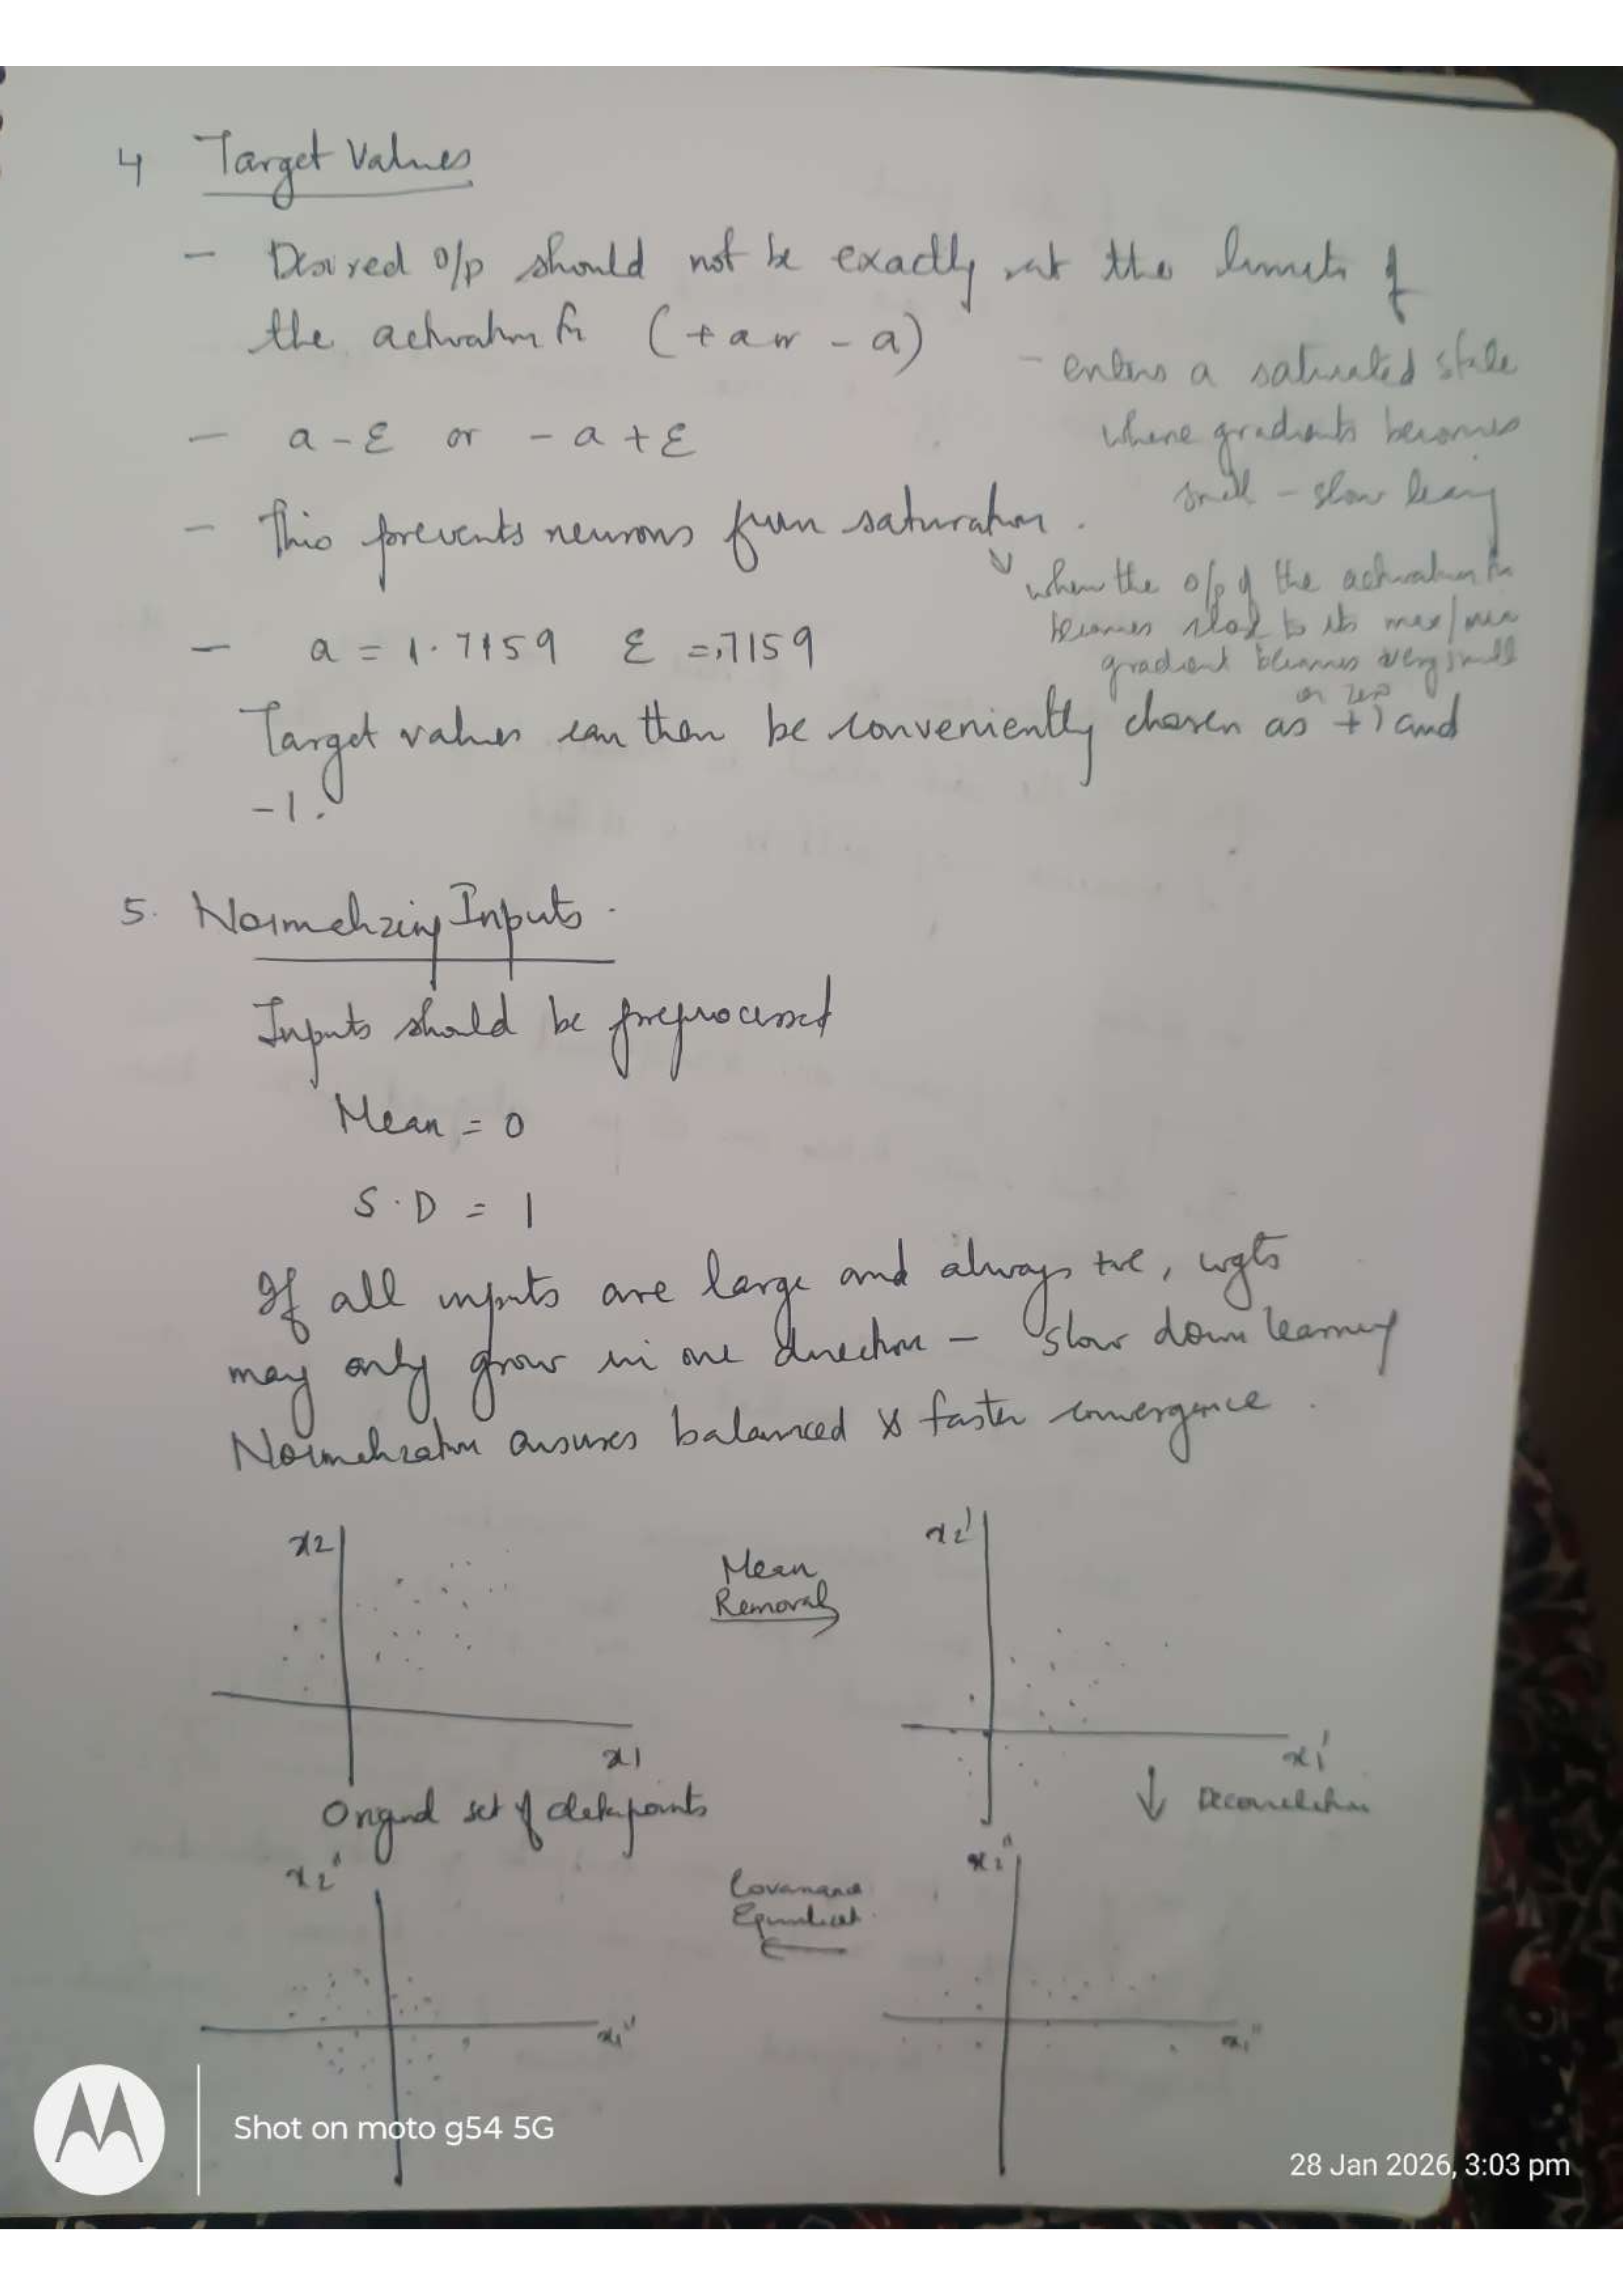 4 Target Values
- Desired o/p should not be exactly at the limits of
the activation fn (+a or - a)
- enters a saturated state
where gradients becomes
small - slow learning
- a - ε or - a + ε
- This prevents neurons from saturation.
when the o/p of the activation fn
becomes close to its max/min
gradient becomes very small
or zero
- a = 1.7159 ε = .7159
Target values can then be conveniently chosen as +1 and
-1.
5. Normalizing Inputs.
Inputs should be preprocessed
Mean = 0
S.D = 1
If all inputs are large and always +ve, wgts
may only grow in one direction - slow down learning
Normalization ensures balanced & faster convergence.
x2
x1
Original set of datapoints
Mean
Removal
x2'
x1'
Decorrelation
x2''
x1''
Covariance
x2''
x1''
Shot on moto g54 5G
28 Jan 2026, 3:03 pm